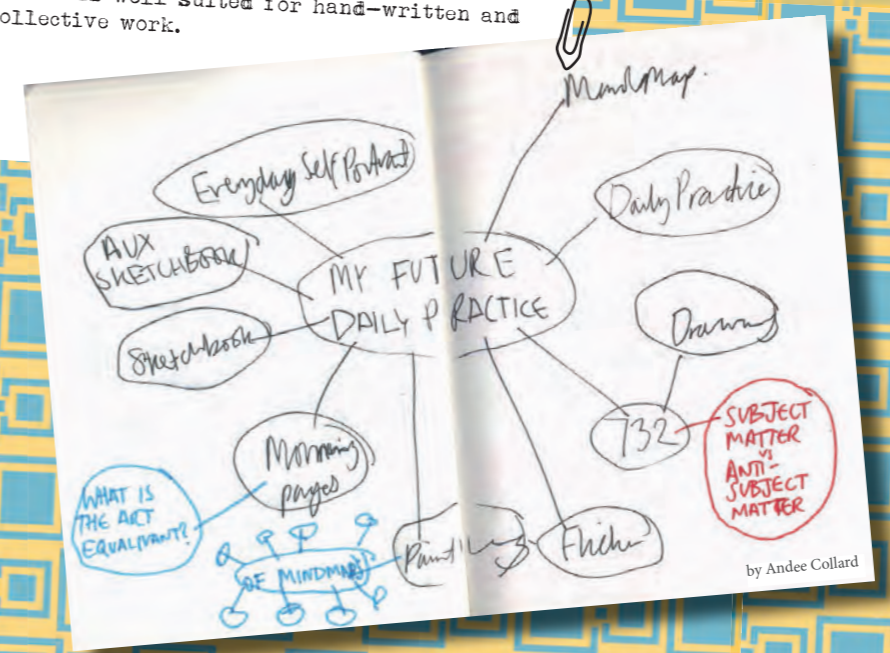 well suited for hand-written and
ollective work.
Mind Map.
Everyday Self Portrait
Daily Practice
AUX
SKETCHBOOK
MY FUTURE
DAILY PRACTICE
Sketchbook
Drawing
732
SUBJECT
MATTER
VS
ANTI-
SUBJECT
MATTER
Morning
pages
WHAT IS
THE ART
EQUALIVANT?
OF MINDMAPS
Paintings
by Andee Collard